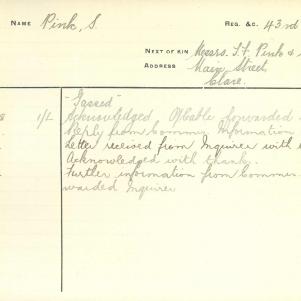 NAME Pink, S. REG. &C. 43rd
NEXT OF KIN Messrs. T. F. Pink &
ADDRESS Main Street,
Clare.
- Gassed -
8 1/L Acknowledged Cable forwarded
Reply from Commis. Information
Letter received from Inquirer with
Acknowledged with thanks.
Further information from Commis.
warded Inquirer